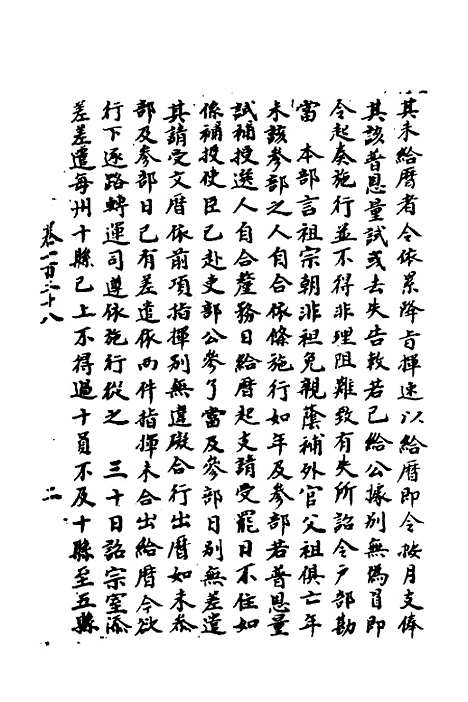 其未給曆者令依累降旨揮速以給曆即令按月支俸
其該普恩量試或去失告敕若已給公據別無偽冒即
令起奏施行並不得非理阻難致有失所詔令戶部勘
當　本部言祖宗朝非祖免親蔭補外官父祖俱亡年
未該參部之人自合依條施行如年及參部若普恩量
試補授選人自合釐務日給曆起支請受罷日不住如
係補授使臣已赴吏部公參了當及參部日別無差遣
其請受文曆依前項指揮別無違礙合行出曆如未參
部及參部日已有差遣依兩件指揮未合出給曆今欲
行下逐路轉運司遵依施行從之　三十日詔宗室添
差差遣每州十縣已上不得過十員不及十縣至五縣
卷一百三十八
二